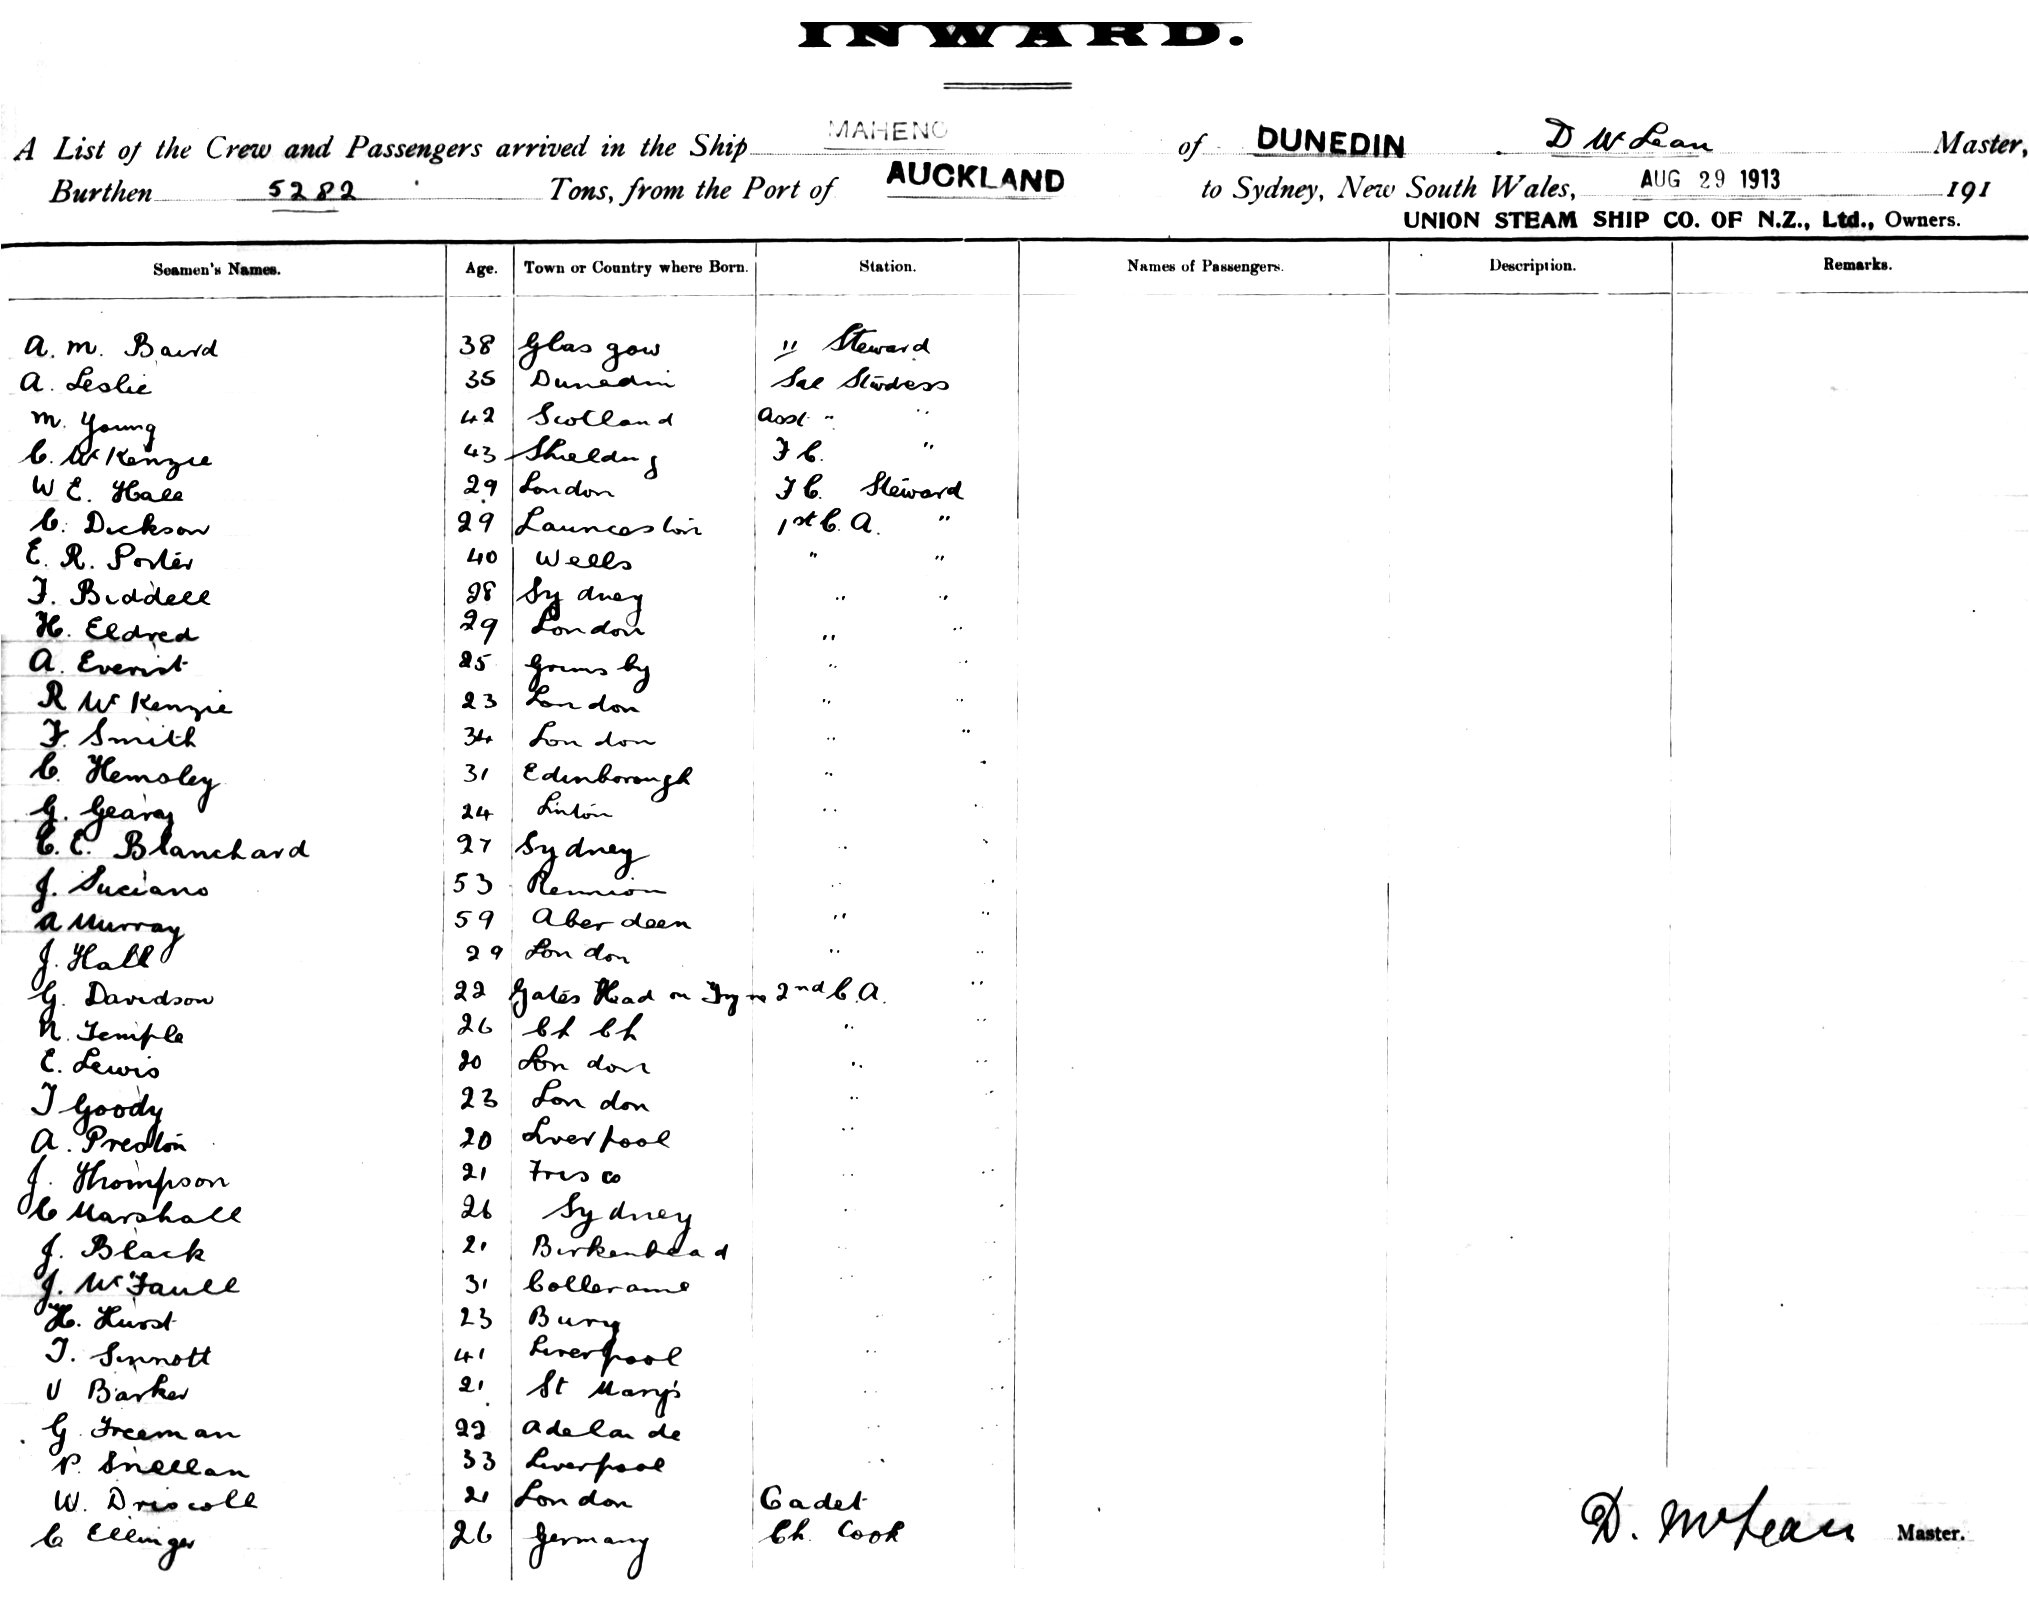 INWARD.
A List of the Crew and Passengers arrived in the Ship MAHENO of DUNEDIN D McLean Master,
Burthen 5282 Tons, from the Port of AUCKLAND to Sydney, New South Wales, AUG 29 1913 191
UNION STEAM SHIP CO. OF N.Z., Ltd., Owners.
Seamen's Names. Age. Town or Country where Born. Station. Names of Passengers. Description. Remarks.
A. M. Baird 38 Glasgow " Steward
A. Leslie 35 Dunedin Sal Stwdess
M. Young 42 Scotland Asst " "
C. McKenzie 43 F C. "
W E. Hall 29 London F C. Steward
C. Dickson 29 Launceston 1st C. A. "
E. R. Porter 40 Wells " "
F. Biddell 28 Sydney " "
H. Eldred 29 London " "
A. Everist 25 Grimsby " "
R McKenzie 23 London " "
F. Smith 34 London " "
C. Hemsley 31 Edinborough " "
G. Geary 24 Linton " "
C. E. Blanchard 27 Sydney " "
J. Luciano 53 Reunion " "
A Murray 59 Aberdeen " "
J. Hall 29 London " "
G. Davidson 22 Gates Head on Tyne 2nd C. A. "
N. Temple 26 Ch Ch " "
E. Lewis 20 London " "
T Goody 23 London " "
A. Preston 20 Liverpool " "
J. Thompson 21 Frisco " "
C Marshall 26 Sydney " "
J. Black 21 Birkenhead " "
J. McFaull 31 Colleraine " "
H. Hurst 23 Bury " "
T. Sinnott 41 Liverpool " "
V Barker 21 St Mary's " "
G. Freeman 22 Adelaide " "
P. Snellan 33 Liverpool " "
W. Driscoll 21 London Cadet
C Ellinger 26 Germany Ch. Cook
D. McLean Master.